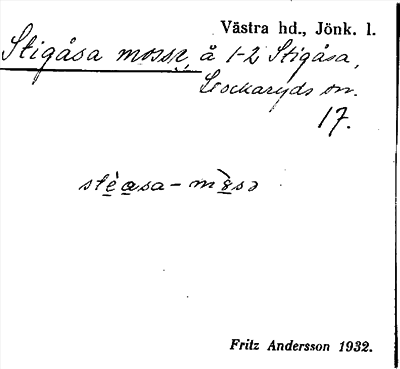 Västra hd., Jönk. l.
Stigåsa mosse, å 1-2 Stigåsa,
Bockaryds sn.
17.
Fritz Andersson 1932.